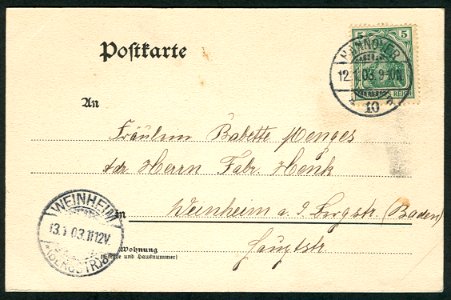 Postkarte
5 5
HANNOVER
12.1.03.9-10
10
REICH
An
Fräulein Babette Menges
Herrn Fabr. Henk
in Weinheim a. d. Bergstr. (Baden)
Hauptstr
Wohnung
(Straße und Hausnummer)
WEINHEIM
13.1.03.11-12V.
(BERGSTR.)